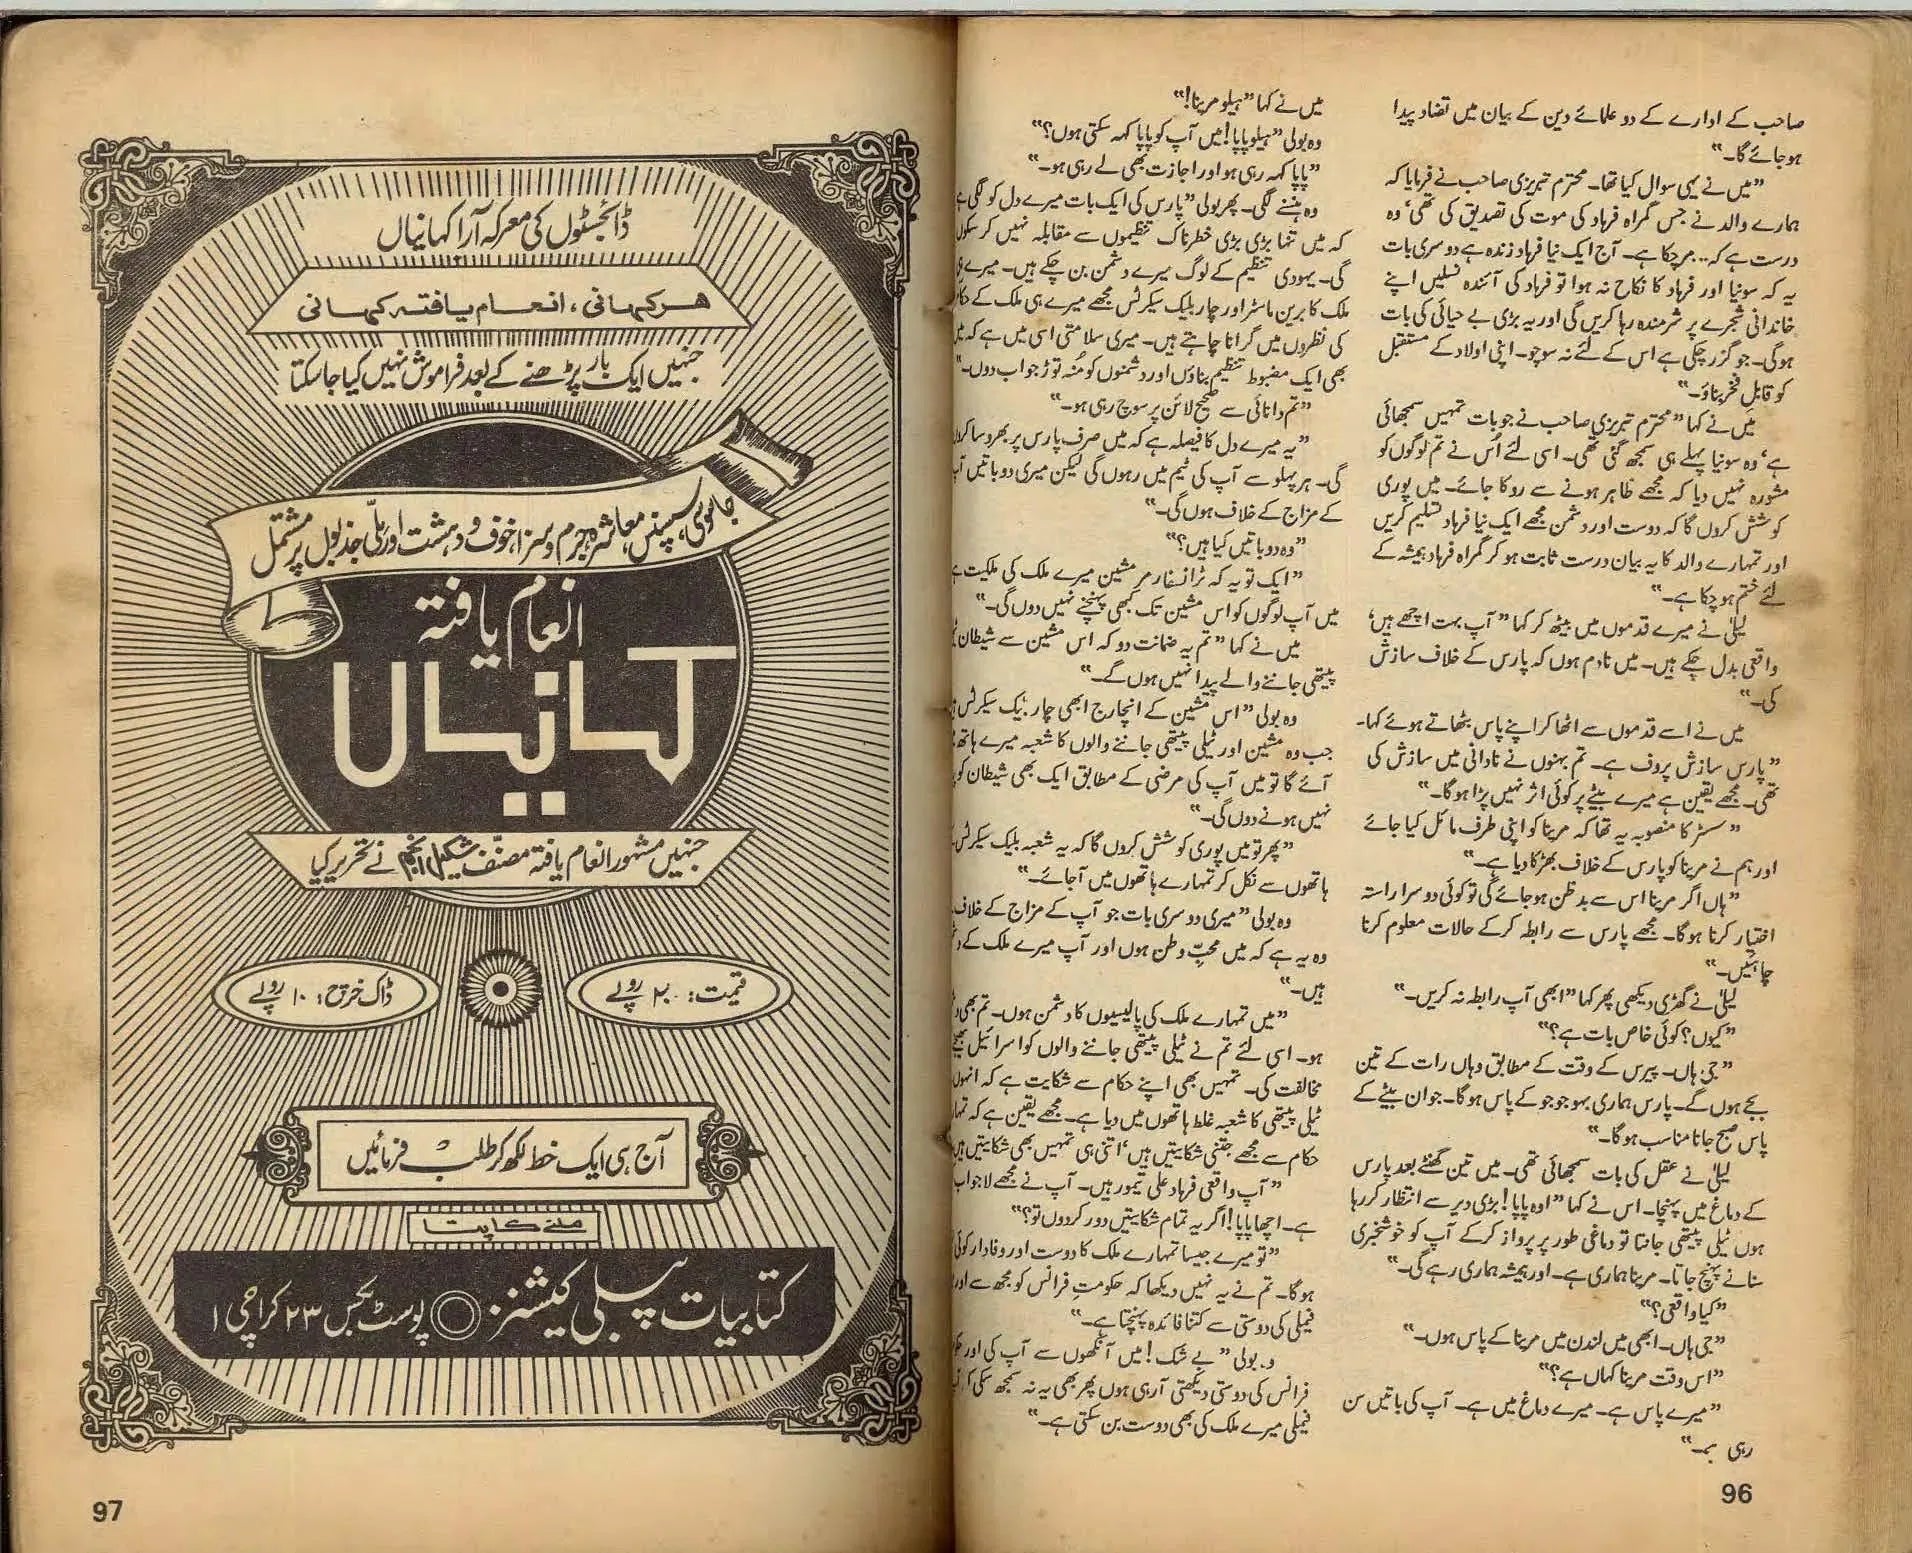 صاحب کے ادارے کے دو علمائے دین کے بیان میں تضاد پیدا
ہو جائے گا۔"
"میں نے یہی سوال کیا تھا۔ محترم تبریزی صاحب نے فرمایا کہ
ہمارے والد نے جس گمراہ فرہاد کی موت کی تصدیق کی تھی' وہ
درست ہے کہ.. مر چکا ہے۔ آج ایک نیا فرہاد زندہ ہے دوسری بات
یہ کہ سونیا اور فرہاد کا نکاح نہ ہوا تو فرہاد کی آئندہ نسلیں اپنے
خاندانی شجرے پر شرمندہ رہا کریں گی اور یہ بڑی بے حیائی کی بات
ہوگی۔ جو گزر چکی ہے اس کے لئے نہ سوچو۔ اپنی اولاد کے مستقبل
کو قابلِ فخر بناؤ۔"
میں نے کہا "محترم تبریزی صاحب نے جو بات تمہیں سمجھائی
ہے' وہ سونیا پہلے ہی سمجھ گئی تھی۔ اسی لئے اُس نے تم لوگوں کو
مشورہ نہیں دیا کہ مجھے ظاہر ہونے سے روکا جائے۔ میں پوری
کوشش کروں گا کہ دوست اور دشمن مجھے ایک نیا فرہاد تسلیم کریں
اور تمہارے والد کا یہ بیان درست ثابت ہو کر گمراہ فرہاد ہمیشہ کے
لئے ختم ہو چکا ہے۔"
لیلیٰ نے میرے قدموں میں بیٹھ کر کہا "آپ بہت اچھے ہیں'
واقعی بدل چکے ہیں۔ میں نادم ہوں کہ پارس کے خلاف سازش
کی۔"
میں نے اسے قدموں سے اٹھا کر اپنے پاس بٹھاتے ہوئے کہا۔
"پارس سازش پروف ہے۔ تم بہنوں نے نادانی میں سازش کی
تھی۔ مجھے یقین ہے میرے بیٹے پر کوئی اثر نہیں پڑا ہوگا۔"
"سسٹر کا منصوبہ یہ تھا کہ مرینا کو اپنی طرف مائل کیا جائے
اور ہم نے مرینا کو پارس کے خلاف بھڑکا دیا ہے۔"
"ہاں اگر مرینا اس سے بدظن ہو جائے گی تو کوئی دوسرا راستہ
اختیار کرنا ہوگا۔ مجھے پارس سے رابطہ کر کے حالات معلوم کرنا
چاہئیں۔"
لیلیٰ نے گھڑی دیکھی پھر کہا "ابھی آپ رابطہ نہ کریں۔"
"کیوں؟ کوئی خاص بات ہے؟"
"جی ہاں۔ پیرس کے وقت کے مطابق وہاں رات کے تین
بجے ہوں گے۔ پارس ہماری بہو جوجو کے پاس ہوگا۔ جوان بیٹے کے
پاس صبح جانا مناسب ہوگا۔"
لیلیٰ نے عقل کی بات سمجھائی تھی۔ میں تین گھنٹے بعد پارس
کے دماغ میں پہنچا۔ اس نے کہا "اوہ پاپا! بڑی دیر سے انتظار کر رہا
ہوں ٹیلی پیتھی جانتا تو دماغی طور پر پرواز کر کے آپ کو خوشخبری
سنانے پہنچ جاتا۔ مرینا ہماری ہے۔ اور ہمیشہ ہماری رہے گی۔"
"کیا واقعی؟"
"جی ہاں۔ ابھی میں لندن میں مرینا کے پاس ہوں۔"
"اس وقت مرینا کہاں ہے؟"
"میرے پاس ہے۔ میرے دماغ میں ہے۔ آپ کی باتیں سن
رہی ہے۔"
96
میں نے کہا "ہیلو مرینا!"
وہ بولی "ہیلو پاپا! میں آپ کو پاپا کہہ سکتی ہوں؟"
"پاپا کہہ رہی ہو اور اجازت بھی لے رہی ہو۔"
وہ ہنسنے لگی۔ پھر بولی "پارس کی ایک بات میرے دل کو لگی ہے
کہ میں تنہا بڑی بڑی خطرناک تنظیموں سے مقابلہ نہیں کر سکوں
گی۔ یہودی تنظیم کے لوگ میرے دشمن بن چکے ہیں۔ میرے
ملک کا برین ماسٹر اور چار بلیک سیکرٹس مجھے میرے ہی ملک کے حکام
کی نظروں میں گرانا چاہتے ہیں۔ میری سلامتی اسی میں ہے کہ میں
بھی ایک مضبوط تنظیم بناؤں اور دشمنوں کو منہ توڑ جواب دوں۔"
"تم دانائی سے صحیح لائن پر سوچ رہی ہو۔"
"یہ میرے دل کا فیصلہ ہے کہ میں صرف پارس پر بھروسا کروں
گی۔ ہر پہلو سے آپ کی ٹیم میں رہوں گی لیکن میری دو باتیں آپ
کے مزاج کے خلاف ہوں گی۔"
"وہ دو باتیں کیا ہیں؟"
"ایک تو یہ کہ ٹرانسفارمر مشین میرے ملک کی ملکیت ہے
میں آپ لوگوں کو اس مشین تک کبھی پہنچنے نہیں دوں گی۔"
میں نے کہا "تم یہ ضمانت دو کہ اس مشین سے شیطان
پیتھی جاننے والے پیدا نہیں ہوں گے۔"
وہ بولی "اس مشین کے انچارج ابھی چار بلیک سیکرٹس
جب وہ مشین اور ٹیلی پیتھی جاننے والوں کا شعبہ میرے ہاتھ
آئے گا تو میں آپ کی مرضی کے مطابق ایک بھی شیطان کو
نہیں ہونے دوں گی۔"
"پھر تو میں پوری کوشش کروں گا کہ یہ شعبہ بلیک سیکرٹس
ہاتھوں سے نکل کر تمہارے ہاتھوں میں آ جائے۔"
وہ بولی "میری دوسری بات جو آپ کے مزاج کے خلاف
وہ یہ ہے کہ میں محبِ وطن ہوں اور آپ میرے ملک کے
ہیں۔"
"میں تمہارے ملک کی پالیسیوں کا دشمن ہوں۔ تم بھی
ہو۔ اسی لئے تم نے ٹیلی پیتھی جاننے والوں کو اسرائیل
مخالفت کی۔ تمہیں بھی اپنے حکام سے شکایت ہے کہ انہوں
ٹیلی پیتھی کا شعبہ غلط ہاتھوں میں دیا ہے۔ مجھے یقین ہے کہ
حکام سے مجھے جتنی شکایتیں ہیں' اتنی ہی تمہیں بھی شکایتیں ہیں
"آپ واقعی فرہاد علی تیمور ہیں۔ آپ نے مجھے لاجواب
ہے۔ اچھا پاپا! اگر یہ تمام شکایتیں دور کر دوں تو؟"
"تو میرے جیسا تمہارے ملک کا دوست اور وفادار کوئی
ہوگا۔ تم نے یہ نہیں دیکھا کہ حکومتِ فرانس کو مجھ سے اور
فیملی کی دوستی سے کتنا فائدہ پہنچتا ہے۔"
وہ بولی "بے شک! میں آنکھوں سے آپ کی اور
فرانس کی دوستی دیکھتی آ رہی ہوں پھر بھی یہ نہ سمجھ سکی کہ
فیملی میرے ملک کی بھی دوست بن سکتی ہے۔"
ڈائجسٹوں کی معرکہ آرا کہانیاں
ہر کہانی، انعام یافتہ کہانی
جنہیں ایک بار پڑھنے کے بعد فراموش نہیں کیا جا سکتا
جاسوسی، سسپنس، معاشرہ، جرم و سزا، خوف و دہشت اور ملّی جذبوں پر مشتمل
انعام یافتہ
کہانیاں
جنہیں مشہور انعام یافتہ مصنّف شکیل انجم نے تحریر کیا
قیمت: ۲۰ روپے
ڈاک خرچ: ۱۰ روپے
آج ہی ایک خط لکھ کر طلب فرمائیں
ملنے کا پتا
کتابیات پبلی کیشنز ○ پوسٹ بکس ۲۳ کراچی ۱
97